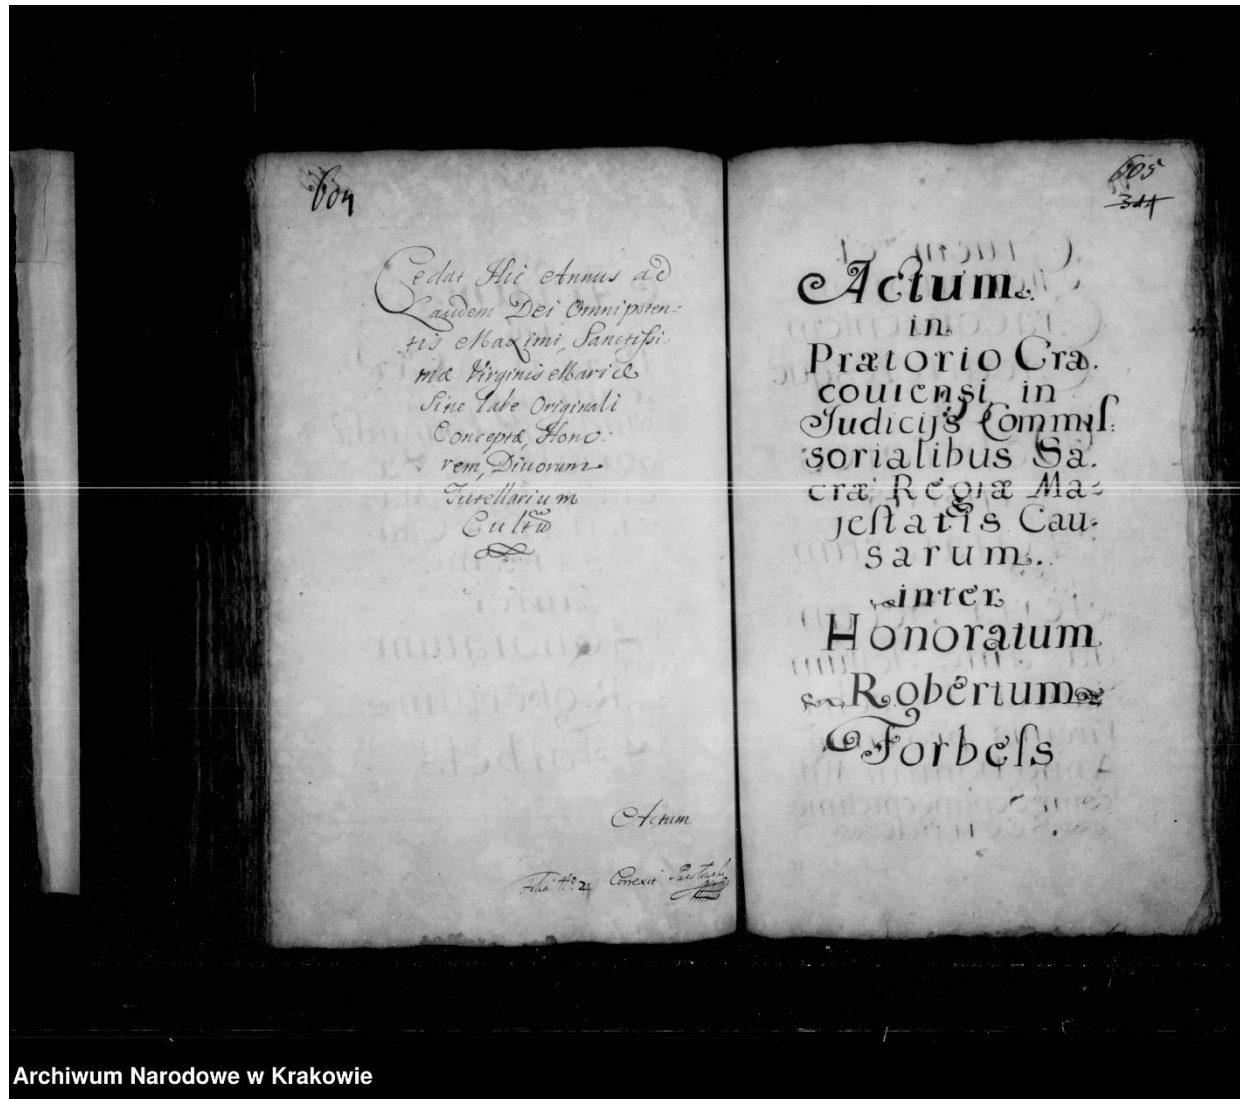 604
Cedat Hic Annus ad
Laudem Dei Omnipoten:
tis Maximi, Sanctissi:
mæ Virginis Mariæ
Sine labe Originali
Conceptæ, Hono:
rem, Divorum
Tutellarium
Cultũ
Actum
Correxit
605
344
Actum
in
Prætorio Cra.
couiensi in
Judicijs Commis:
sorialibus Sa.
cræ Regiæ Ma:
jestatis Cau:
sarum.
inter
Honoratum
Robertum
Forbess
Archiwum Narodowe w Krakowie